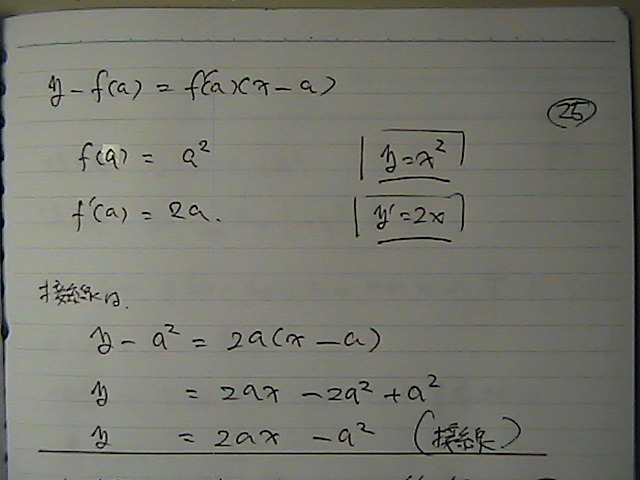 y - f(a) = f'(a)(x - a)
㉕
f(a) = a² y = x²
f'(a) = 2a. y' = 2x
接線は.
y - a² = 2a(x - a)
y = 2ax - 2a² + a²
y = 2ax - a² (接線)